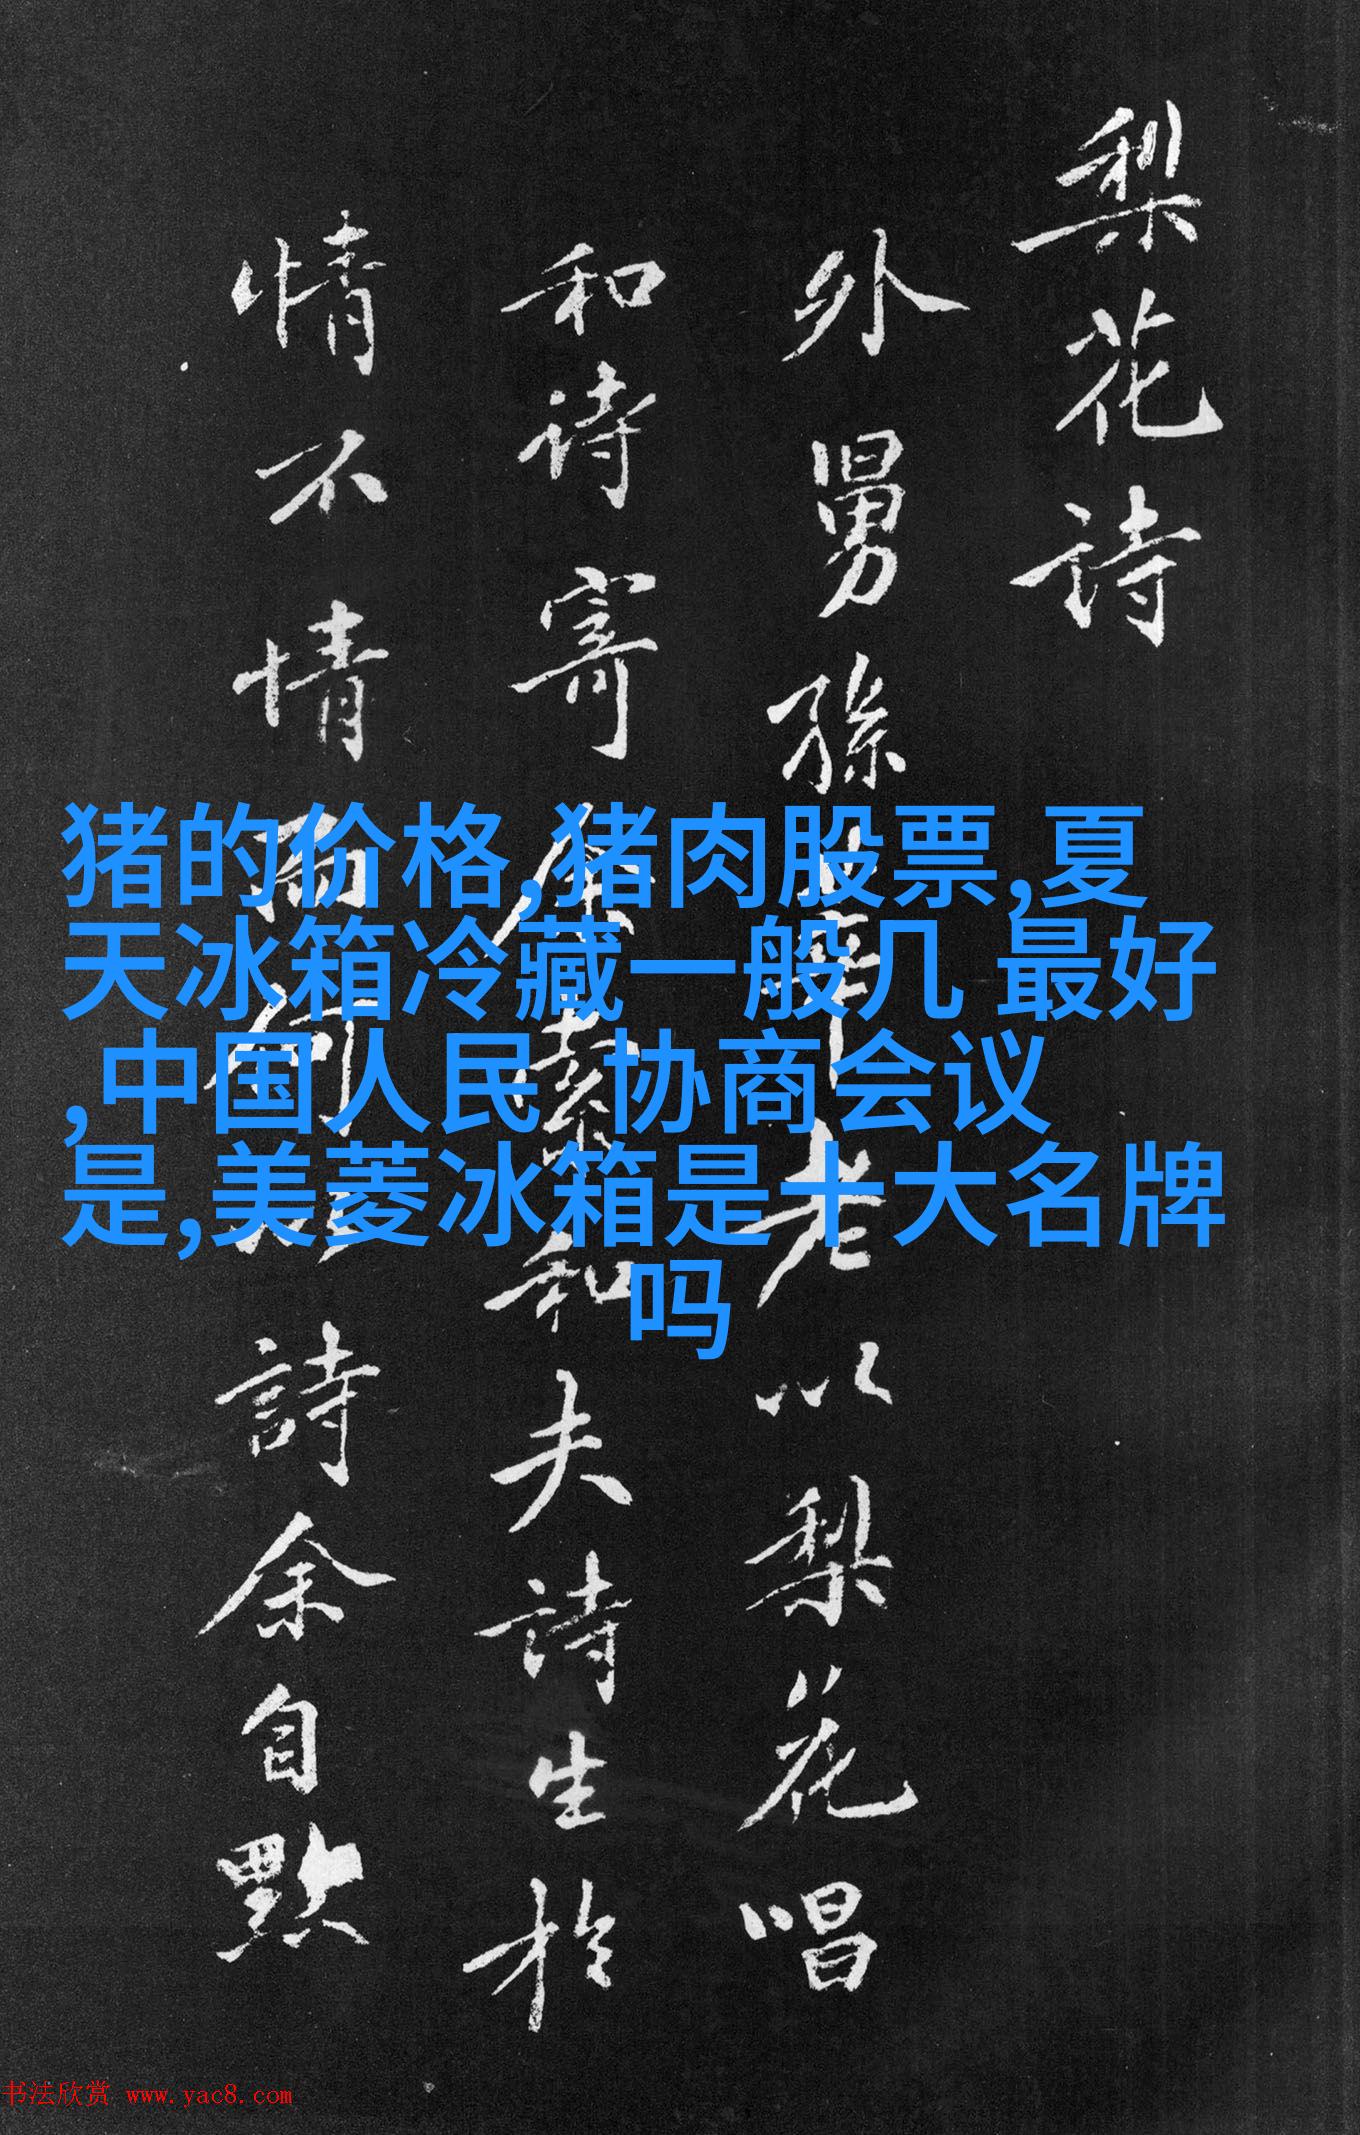 梨花詩
外舅孫莘老以梨花唱
和诗寄余素和夫詩生於
情不情而何詩余自黙
猪的价格,猪肉股票,夏
天冰箱冷藏一般几 最好
,中国人民 协商会议
是,美菱冰箱是十大名牌
吗
书法欣赏 www.yac8.com